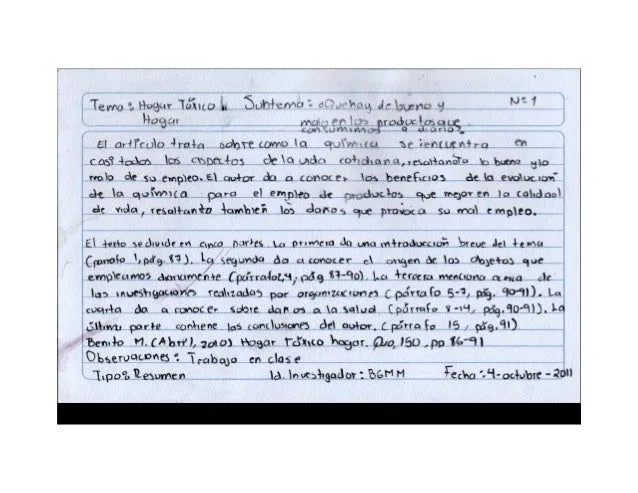 Tema: Hogar Tóxico Subtema: ¿Que hay de bueno y Nº 1
Hogar malo en los productos que
consumimos a diario?
El artículo trata sobre como la química se encuentra en
casi todos los aspectos de la vida cotidiana, resaltando lo bueno y lo
malo de su empleo. El autor da a conocer los beneficios de la evolución
de la química para el empleo de productos que mejoren la calidad
de vida, resaltanto también los daños que provoca su mal empleo.
El texto se divide en cinco partes. La primera da una introducción breve del tema
(párrafo 1, pág. 87). La segunda da a conocer el origen de los objetos que
empleamos diariamente (párrafo 2,4, pág 87-90). La tercera menciona acerca de
las investigaciones realizadas por organizaciones (párrafo 5-7, pág. 90-91). La
cuarta da a conocer sobre daños a la salud (párrafo 8-14, pág. 90-91). La
última parte contiene las conclusiones del autor. (párrafo 15, pág. 91)
Benito M. (Abril, 2010) Hogar Tóxico hogar. Quo, 150, pp 86-91
Observaciones: Trabajo en clase
Tipo: Resumen Id. Investigador: BGMM Fecha: 4-octubre-2011